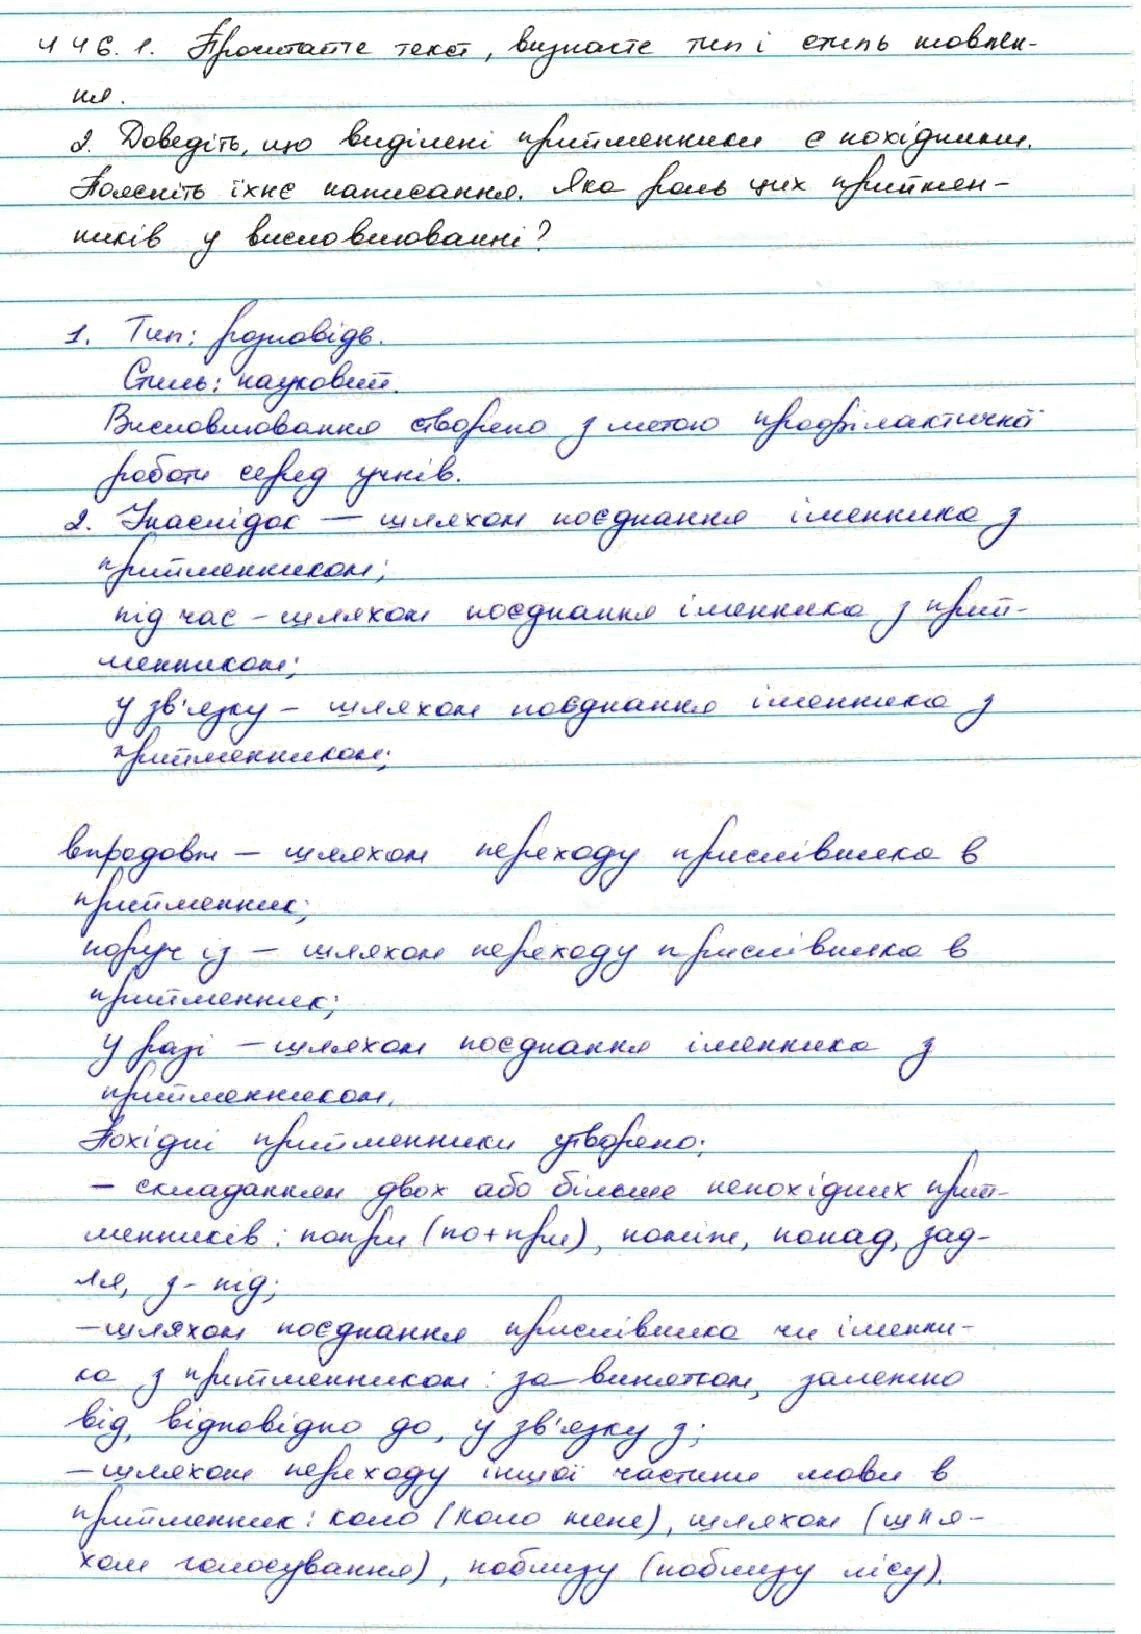 446. 1. Прочитайте текст, визначте тип і стиль мовлен-
ня.
2. Доведіть, що виділені прийменники є похідними.
Поясніть їхнє написання. Яка роль цих приймен-
ників у висловлюванні?
1. Тип: розповідь.
Стиль: науковий.
Висловлювання створено з метою профілактичної
роботи серед учнів.
2. Унаслідок — шляхом поєднання іменника з
прийменником;
під час – шляхом поєднання іменника з прий-
менником;
у зв'язку – шляхом поєднання іменника з
прийменником;
впродовж – шляхом переходу прислівника в
прийменник;
поруч із – шляхом переходу прислівника в
прийменник;
у разі – шляхом поєднання іменника з
прийменником.
Похідні прийменники утворено:
– складанням двох або більше непохідних прий-
менників: попри (по+при), поміж, понад, зад-
ля, з-під;
– шляхом поєднання прислівника чи іменни-
ка з прийменником: за винятком, залежно
від, відповідно до, у зв'язку з;
– шляхом переходу іншої частини мови в
прийменник: коло (коло мене), шляхом (шля-
хом голосування), поблизу (поблизу лісу).